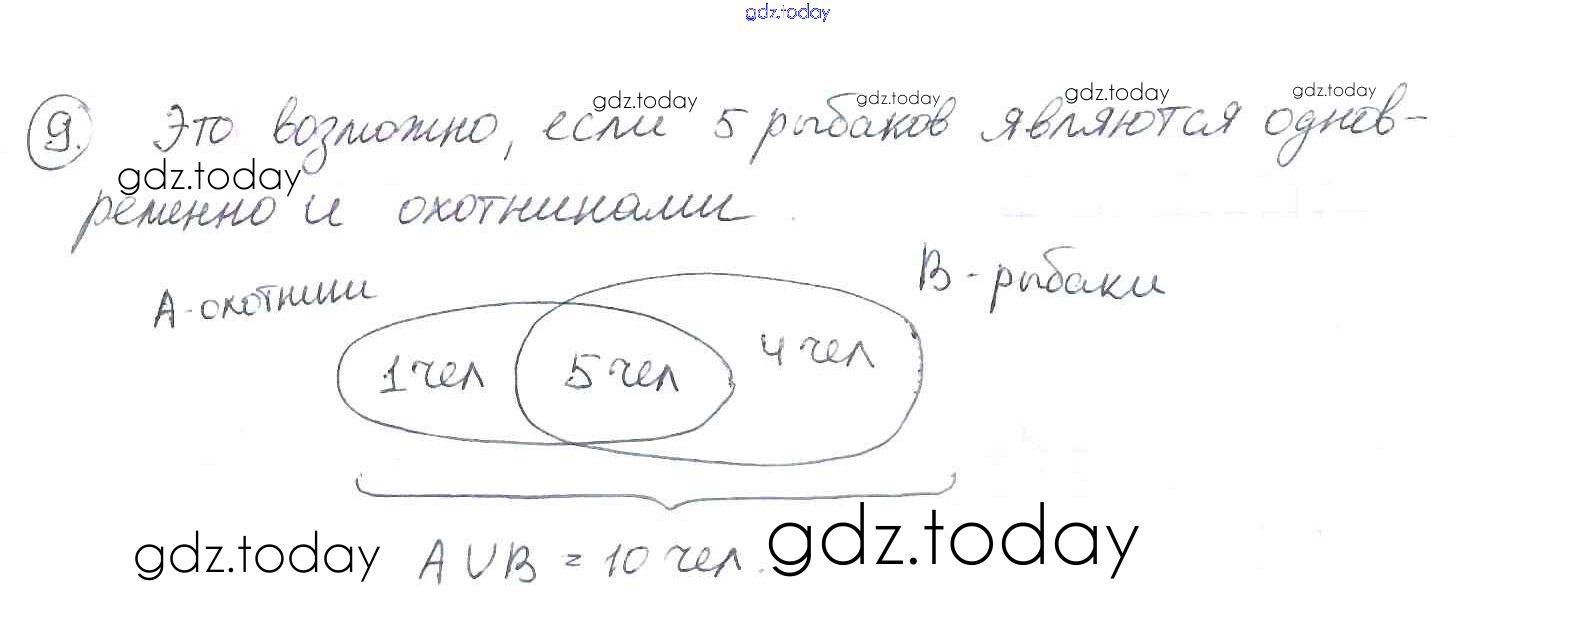 gdz.today
gdz.today gdz.today gdz.today gdz.today
9. Это возможно, если 5 рыбаков являются однов-
gdz.today
ременно и охотниками.
А-охотники
В-рыбаки
1 чел 5 чел 4 чел
gdz.today A ∪ B = 10 чел. gdz.today